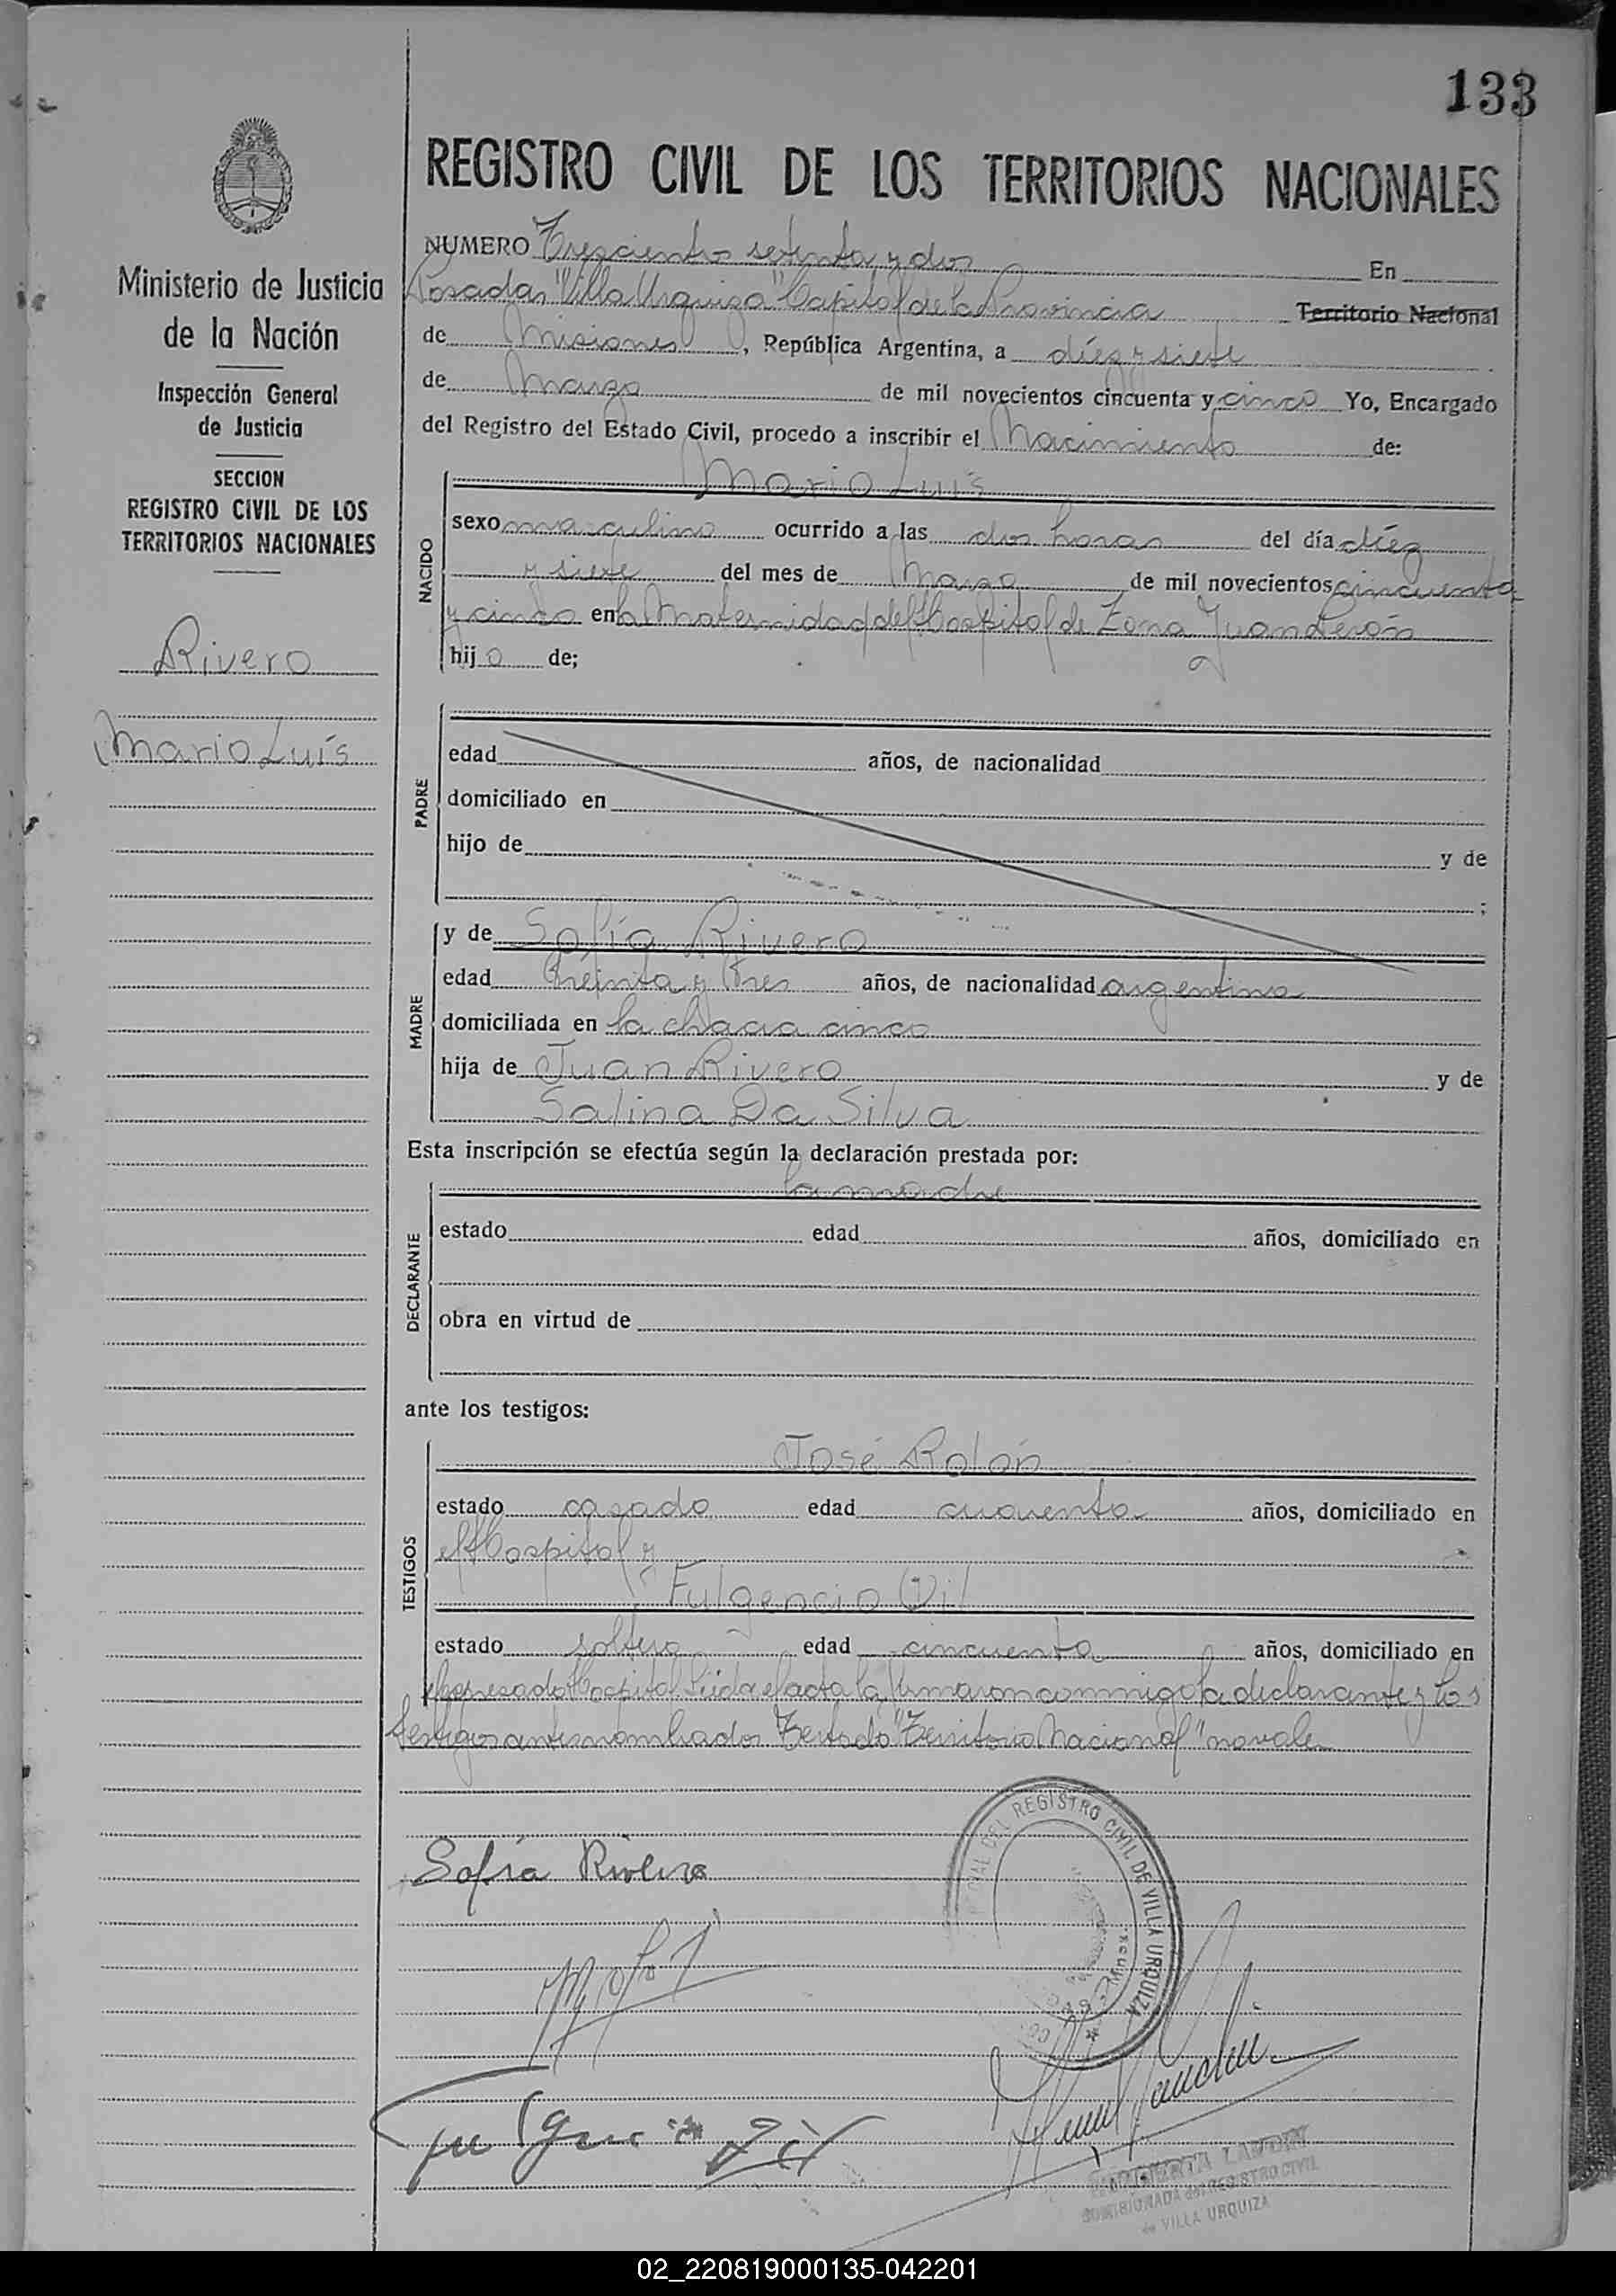 133
REGISTRO CIVIL DE LOS TERRITORIOS NACIONALES
Ministerio de Justicia
de la Nación
Inspección General
de Justicia
SECCION
REGISTRO CIVIL DE LOS
TERRITORIOS NACIONALES
Rivero
Mario Luís
NUMERO Trescientos setenta y dos En
Posadas "Villa Urquiza" Capital de la Provincia Territorio Nacional
de Misiones, República Argentina, a díez y siete
de Marzo de mil novecientos cincuenta y cinco Yo, Encargado
del Registro del Estado Civil, procedo a inscribir el Nacimiento de:
NACIDO
Mario Luís
sexo masculino ocurrido a las dos horas del día díez
y siete del mes de Marzo de mil novecientos cincuenta
y cinco en la Maternidad del Hospital de Zona Juan Perón
hijo de;
PADRE
edad años, de nacionalidad
domiciliado en
hijo de y de
;
MADRE
y de Sofía Rivero
edad treinta y tres años, de nacionalidad argentina
domiciliada en la chacra cinco
hija de Juan Rivero y de
Salina Da Silva
Esta inscripción se efectúa según la declaración prestada por:
DECLARANTE
la madre
estado edad años, domiciliado en
obra en virtud de
ante los testigos:
TESTIGOS
José Rolón
estado casado edad cuarenta años, domiciliado en
el Hospital y
Fulgencio Gil
estado soltero edad cincuenta años, domiciliado en
el Hospital Leída el acta la firmaron conmigo la declarante y los
testigos antes nombrados Testado "Territorio Nacional" no vale
Sofía Rivero
REGISTRO CIVIL DE VILLA URQUIZA
Fulgencio Gil
COMISIONADA del REGISTRO CIVIL
de VILLA URQUIZA
02_220819000135-042201